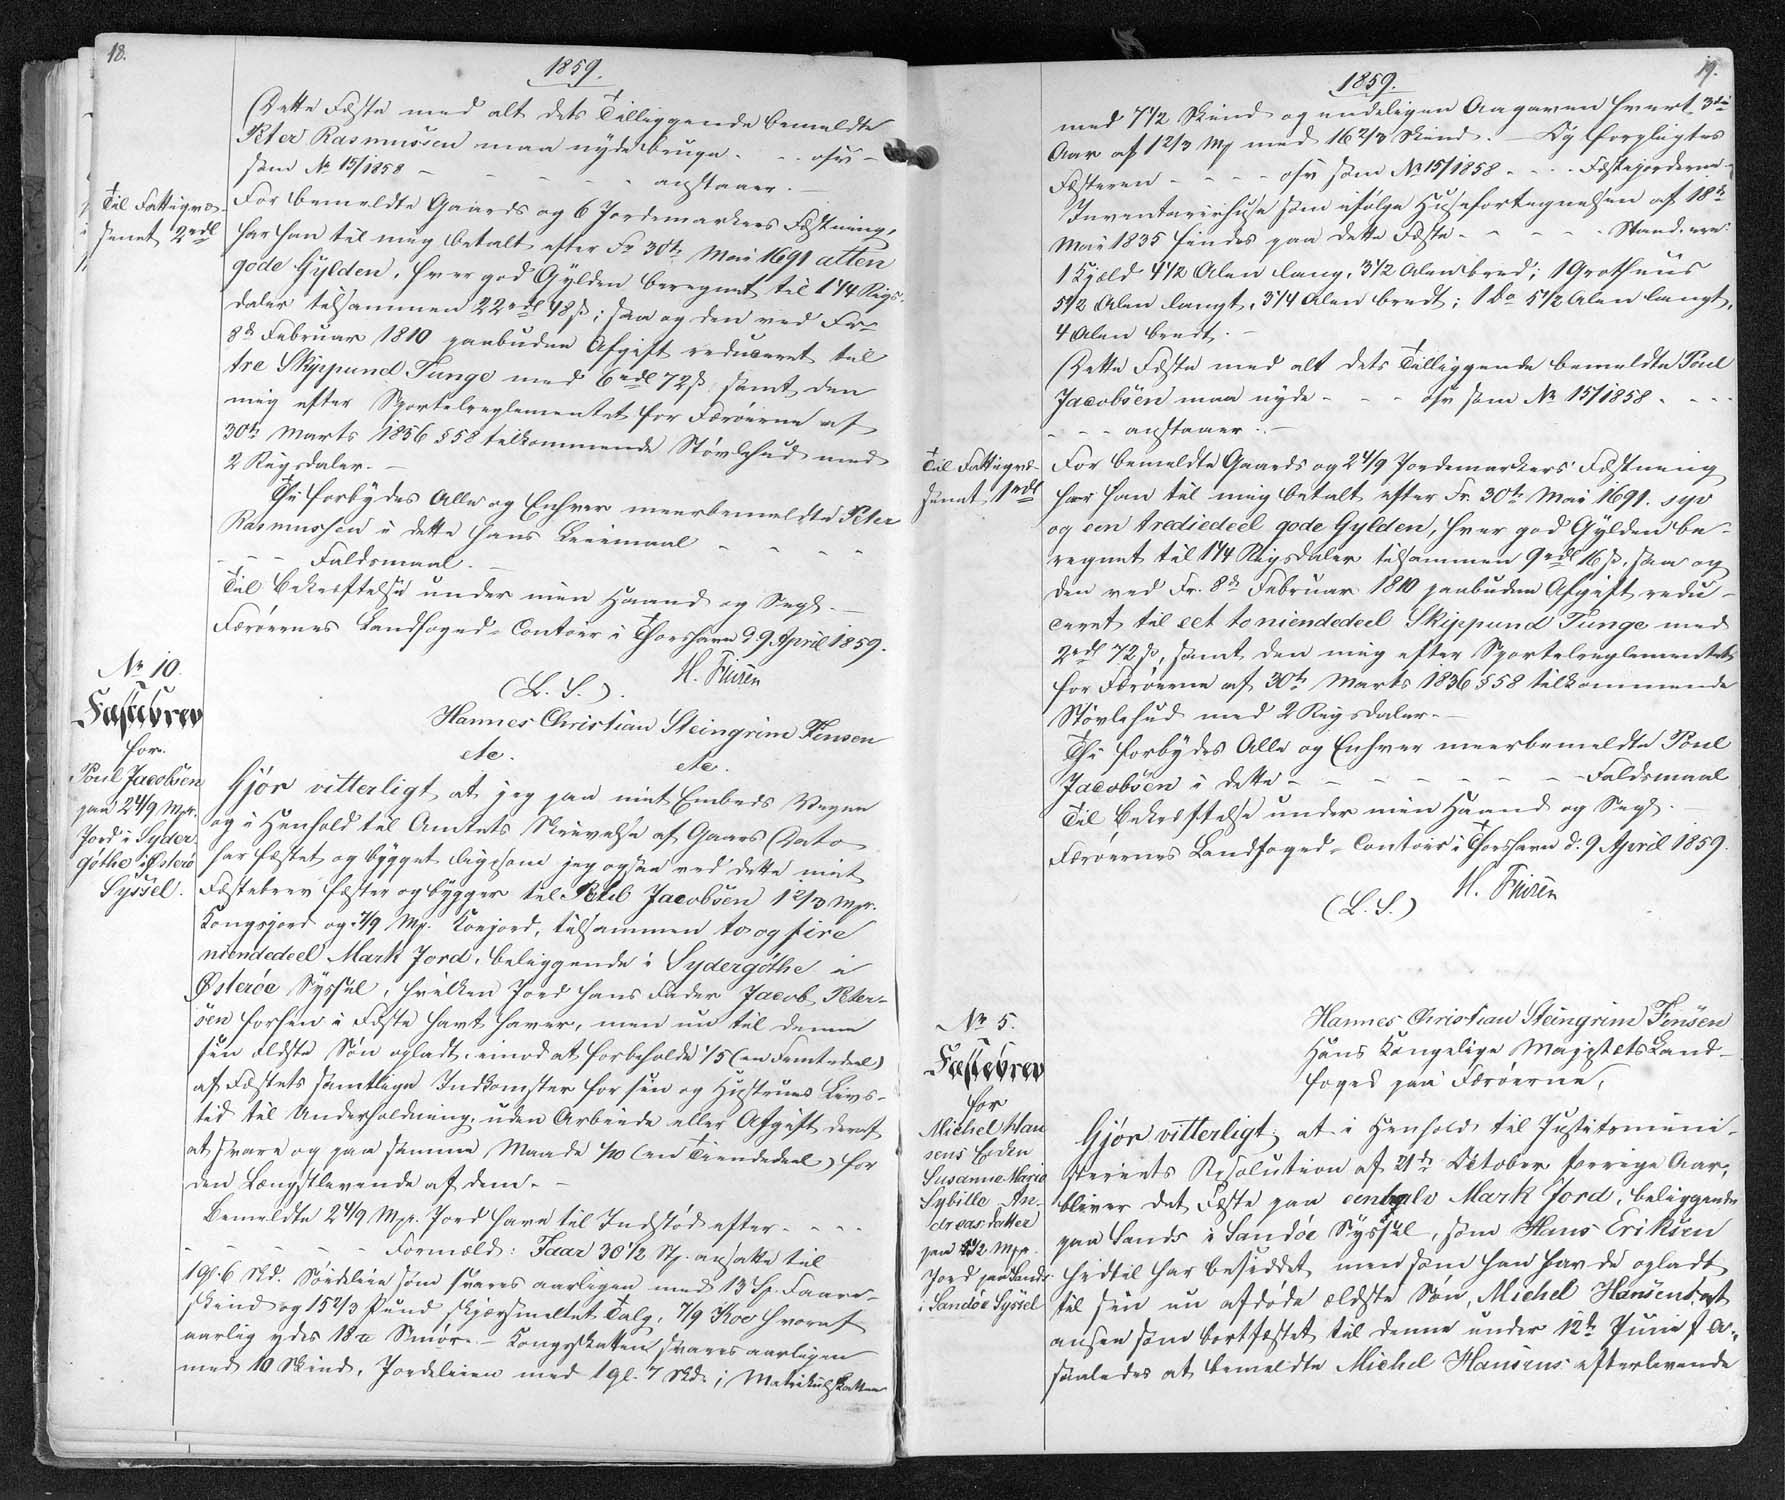 18.
1859.
Dette Fæste med alt dets Tilliggende bemeldte
Peter Rasmussen maa nyde bruge - - osv -
som No 15/1858 - - - - - anstaaer. -
Til Fattigvæ-
senet 2 rdl
For bemeldte Gaards og 6 Jordemarkers Fæstning,
har han til mig betalt efter Fr 30te Mai 1691 atten
gode Gylden, hver god Gylden beregnet til 1 1/4 Rigs-
daler tilsammen 22 rdl 48 ß; saa og den ved Fr
8de Februar 1810 paabudne Afgift reduceret til
tre Skippund Tunge med 6 rdl 72 ß samt den
mig efter Sportelreglementet for Færöerne af
30te Marts 1836 § 58 tilkommende Støvlehud med
2 Rigsdaler. -
Thi forbydes Alle og Enhver meerbemeldte Peter
Rasmussen i dette hans Leiemaal - - - -
- - Faldsmaal. -
Til Bekræftelse under min Haand og Segl. -
Færöernes Landfoged-Contoir i Thorshavn d. 9 April 1859.
H. Finsen
(L. S.).
No 10.
Fæstebrev
for
Poul Jacobsen
paa 2 4/9 Mpr.
Jord i Syder
göthe i Österö
Syssel.
Hannes Christian Steingrim Finsen
etc. etc.
Gjör vitterligt, at jeg paa mit Embeds Vegne
og i Henhold til Amtets Skrivelse af Gaars Dato
har fæstet og bygget ligesom jeg ogsaa ved dette mit
Fæstebrev fæster og bygger til Poul Jacobsen 1 2/3 Mpr.
Kongsjord og 7/9 Mp. Konjord, tilsammen to og fire
niendedeel Mark Jord, beliggende i Sydergöthe i
Österöe Syssel, hvilken Jord hans Fader Jacob Peter-
sen forhen i Fæste havt haver, men nu til denne
sin ældste Søn opladt, imod at forbeholde 1/5 (en Femtedeel)
af Fæstets samtlige Indkomster for sin og Hustrues Livs-
tid til Underholdning, uden Arbeide eller Afgift deraf
at svare og paa samme Maade 1/10 (en Tiendedeel) for
den Længstlevende af dem. -
Bemeldte 2 4/9 Mpr. Jord have til Indstød efter - - - -
- - - - Formæld: Faar 30 1/2 St. ansatte til
1 gl. 6 Skd. Söideleie som svares aarligen med 13 St. Faare-
skind og 15 2/3 Pund skjærsmeltet Talg, 7/9 Koe hvoraf
aarlig ydes 18 Smör. - Kongsskatten svares aarligen
med 10 Skind, Jordeleien med 1 gl. 7 Skd.; Matrikulskatten
19.
1859.
med 7 1/2 Skind og endeligen Aagaven hvert 3die
Aar af 1 2/3 Mp med 16 2/3 Skind. - Og forpligtes
Fæsteren - - - - osv som No 15/1858 - - - Fæstejorderne -
Inventariehuse som ifølge Husefortegnelsen af 18de
Mai 1835 findes paa dette Fæste - - - - - Stand. ere:
1 Hjeld 4 1/2 Alen lang, 3 1/2 Alen bred; 1 Grothuus
5 1/2 Alen langt, 3 1/4 Alen bredt; 1 do 5 1/2 Alen langt,
4 Alen bredt. -
Dette Fæste med alt dets Tilliggende bemeldte Poul
Jacobsen maa nyde - - - osv som No 15/1858 - - -
- - - anstaaer. -
Til Fattigvæ-
senet 1 rdl
For bemeldte Gaards og 2 4/9 Jordemarkers Fæstning
har han til mig betalt efter Fr. 30te Mai 1691. syv
og een trediedeel gode Gylden, hver god Gylden be-
regnet til 1 1/4 Rigsdaler tilsammen 9 rdl 16 ß, saa og
den ved Fr. 8de Februar 1810 paabudne Afgift redu-
ceret til eet to niendedeel Skippund Tunge med
2 rdl 72 ß, samt den mig efter Sportelreglementet
for Færöerne af 30te Marts 1836 § 58 tilkommende
Støvlehud med 2 Rigsdaler. -
Thi forbydes Alle og Enhver meerbemeldte Poul
Jacobsen i dette - - - - - - - - Faldsmaal
Til Bekræftelse under min Haand og Segl. -
Færöernes Landfoged-Contoir i Thorshavn d. 9 April 1859.
H. Finsen
(L. S.)
No 5.
Fæstebrev
for
Michel Han
sens Enke
Susanne Marie
Sybille An-
dreasdatter
paa 1/2 Mpr.
Jord paa Sands
i Sandöe Syssel
Hannes Christian Steingrim Finsen
Hans Kongelige Majestets Land-
foged paa Færöerne,
Gjör vitterligt, at i Henhold til Justitsmini-
steriets Resolution af 21de October forrige Aar,
bliver det Fæste paa een halv Mark Jord, beliggende
paa Sands i Sandöe Syssel, som Hans Eriksen
hidtil har besiddet, men som han havde opladt
til sin nu afdøde ældste Søn, Michel Hansen, at
ansee som bortfæstet til denne under 12te Juni f. A.,
saaledes at bemeldte Michel Hansens efterlevende